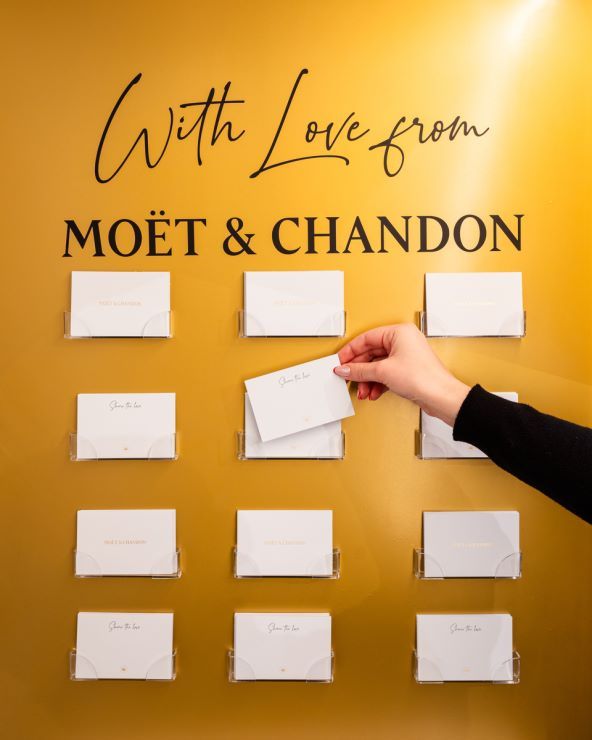 With Love from
MOËT & CHANDON
MOËT & CHANDON
MOËT & CHANDON
MOËT & CHANDON
Share the love
Share the love
MOËT & CHANDON
MOËT & CHANDON
MOËT & CHANDON
Share the love
Share the love
Share the love